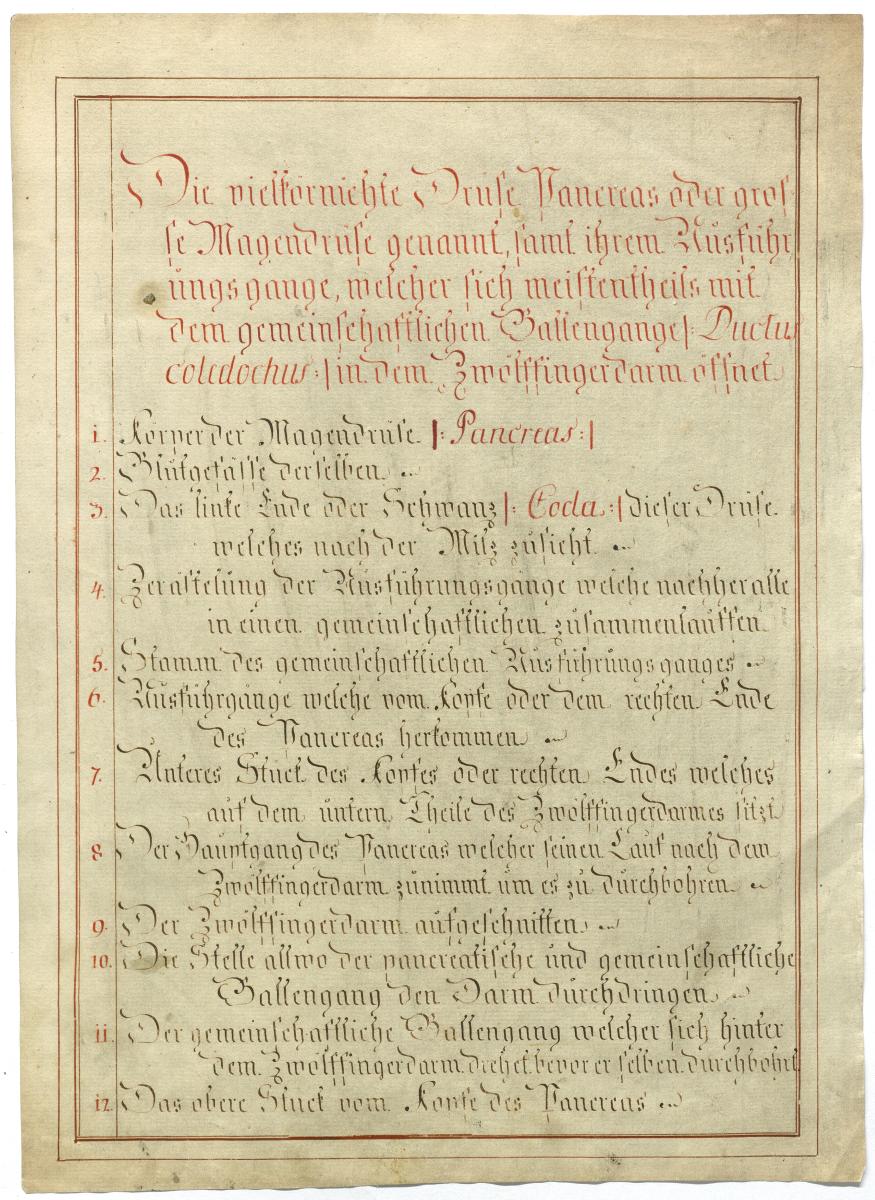 Die vielkörnichte Drüse Pancreas oder gros-
se Magendrüse genannt, samt ihrem Ausführ
ungsgange, welcher sich meistentheils mit
dem gemeinschaftlichen Gallengange |: Ductus
coledochus :| in dem Zwölffingerdarm öffnet
1. Körper der Magendrüse |: Pancreas :|
2. Blutgefässe derselben
3. Das linke Ende oder Schwanz |: Coda :| dieser Drüse
welches nach der Milz zusieht
4. Zerästelung der Ausführungsgänge welche nachher alle
in einen gemeinschaftlichen zusammenlauffen
5. Stamm des gemeinschaftlichen Ausführungsganges
6. Ausführgänge welche vom Kopfe oder dem rechten Ende
des Pancreas herkommen
7. Unteres Stück des Kopfes oder rechten Endes welches
auf dem untern Theile des Zwölffingerdarmes sitzt
8. Der Hauptgang des Pancreas welcher seinen Lauf nach dem
Zwölffingerdarm zunimmt um es zu durchbohren
9. Der Zwölffingerdarm aufgeschnitten
10. Die Stelle allwo der pancreatische und gemeinschaftliche
Gallengang den Darm durchdringen
11. Der gemeinschaftliche Gallengang welcher sich hinter
dem Zwölffingerdarm drehet bevor er selben durchbohrt
12. Das obere Stück vom Kopfe des Pancreas